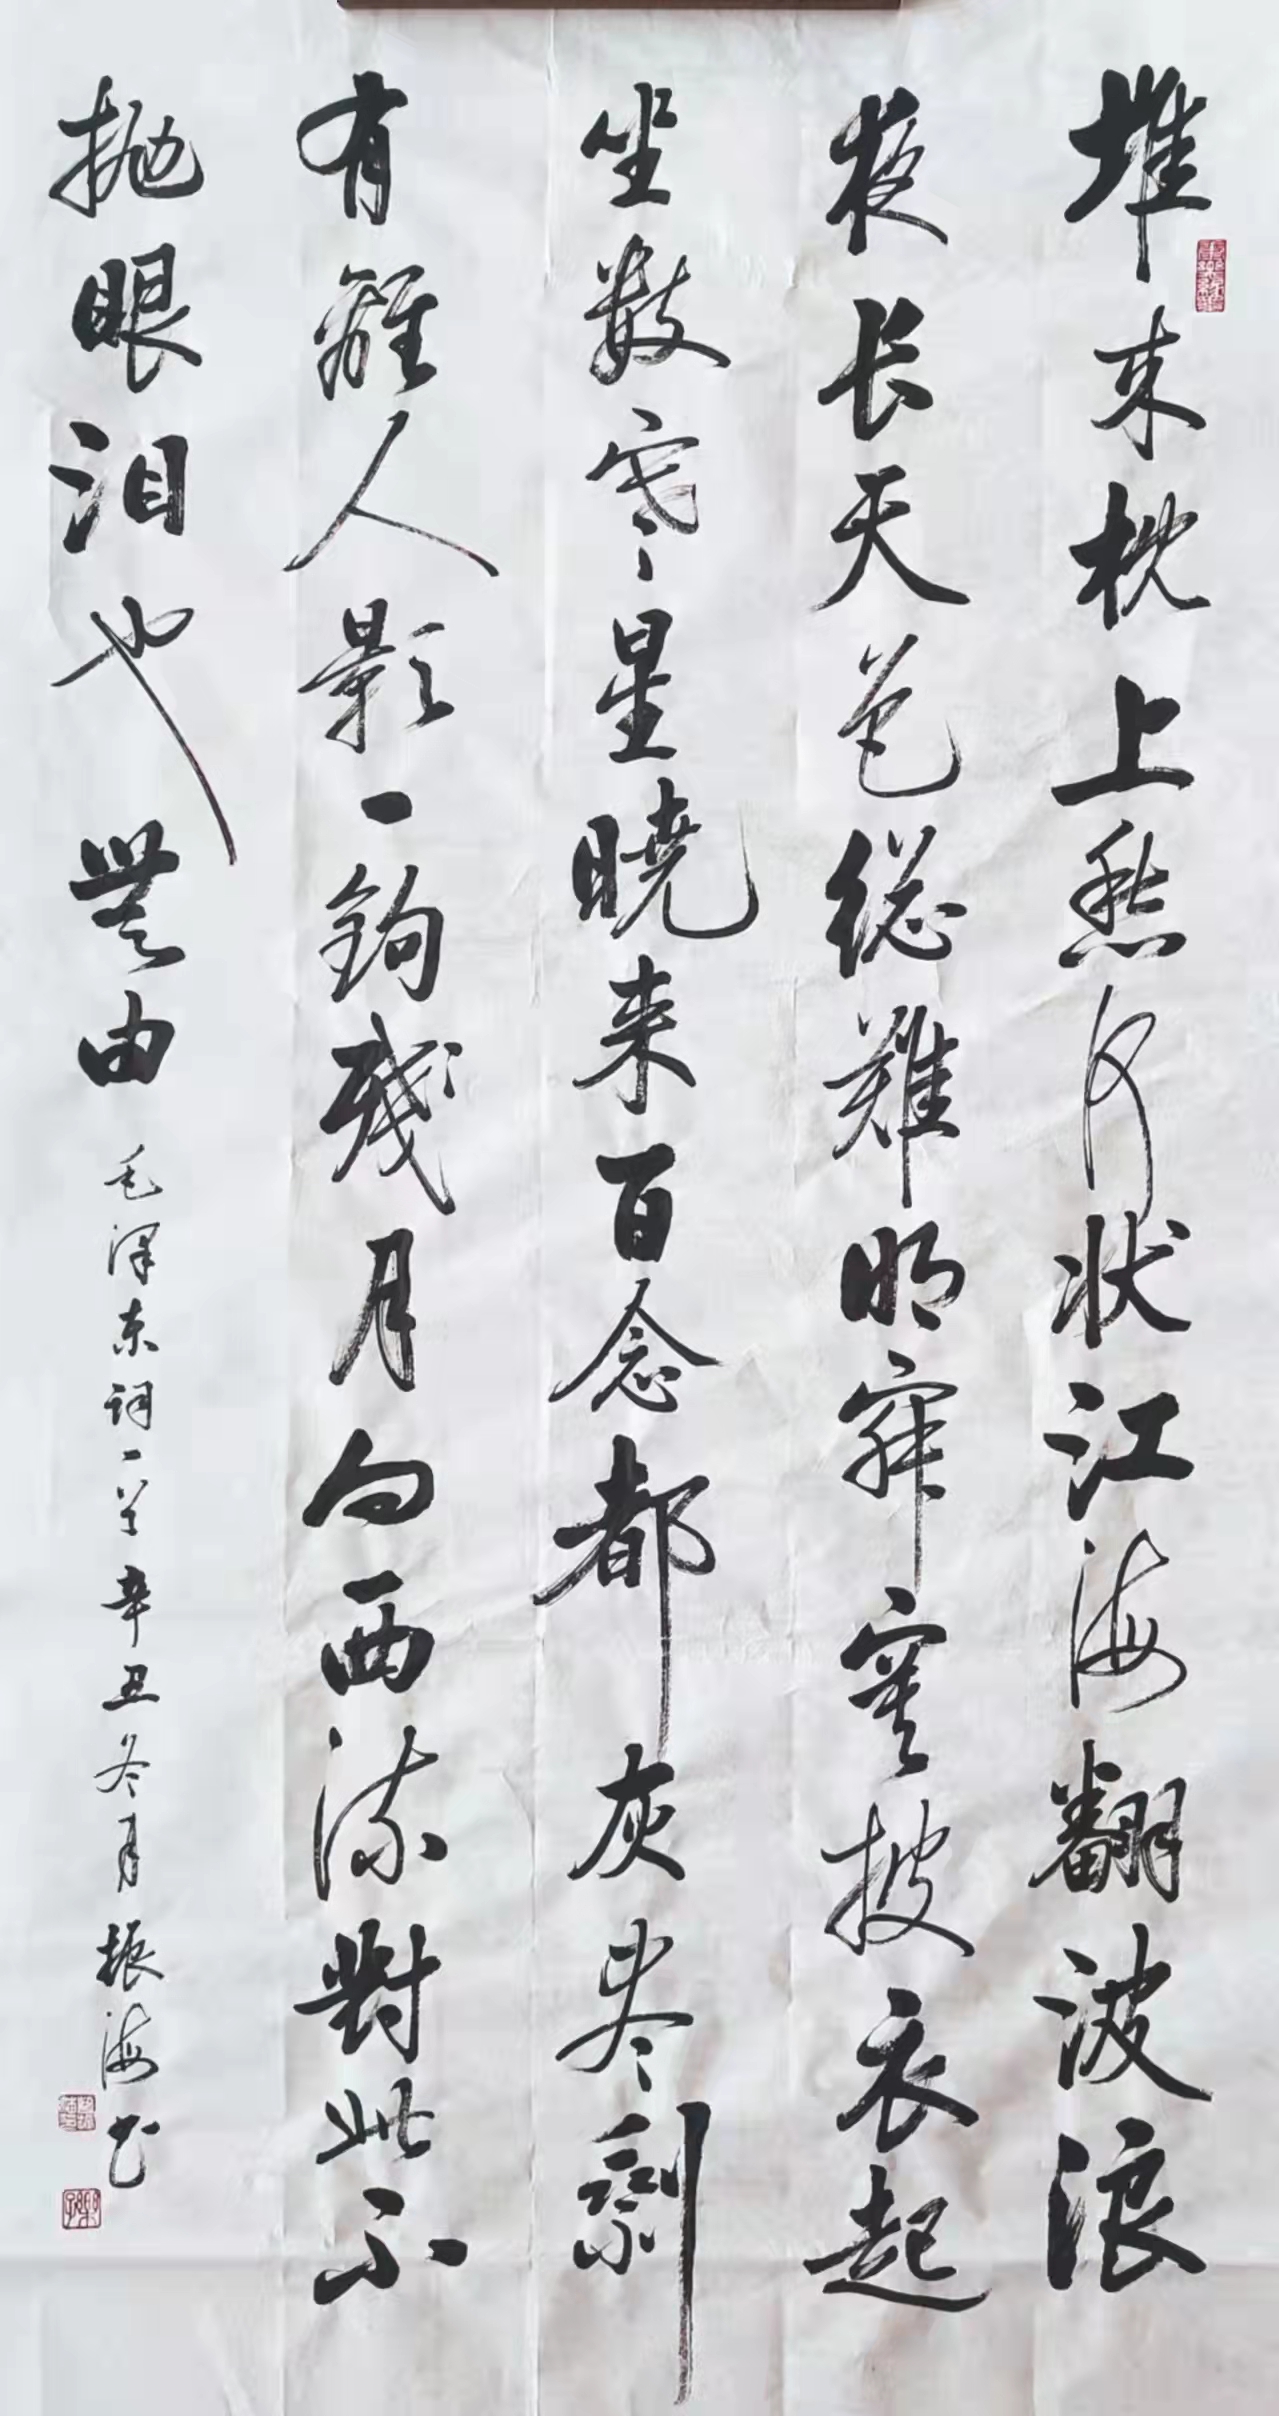 堆来枕上愁何状江海翻波浪
夜长天色総难明寂寞披衣起
坐数寒星晓来百念都灰尽剩
有離人影一鉤残月向西流對此不
抛眼泪也無由
毛泽东词一首辛丑冬月振海书